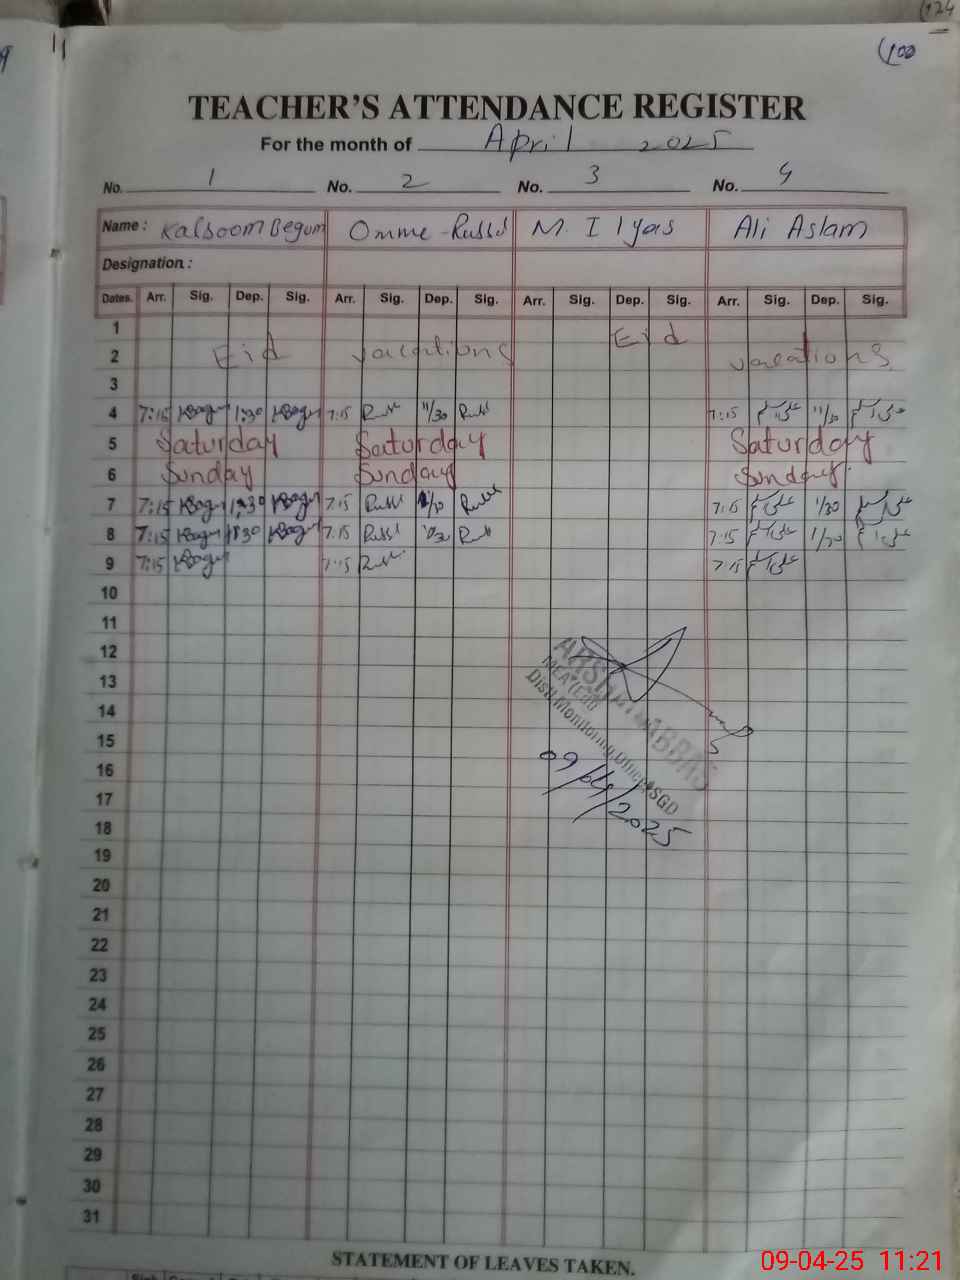 100
TEACHER'S ATTENDANCE REGISTER
For the month of April 2025
No. 1 No. 2 No. 3 No. 4
Name: Kalsoom Begum Omme-Rubbl M. Ilyas Ali Aslam
Designation:
Dates. Arr. Sig. Dep. Sig. Arr. Sig. Dep. Sig. Arr. Sig. Dep. Sig. Arr. Sig. Dep. Sig.
1 Eid
2 Eid vacations vacations
3
4 7:15 1:30 7:15 11/30 7:15 11/30
5 Saturday Saturday Saturday
6 Sunday Sunday Sunday
7 7:15 1:30 7:15 1/30 7:15 1/30
8 7:15 1:30 7:15 1/30 7:15 1/30
9 7:15 7:15 7:15
10
11
12
13
14
15
16
17
18
19
20
21
22
23
24
25
26
27
28
29
30
31
ABBAS
MEA
Distt Monitoring Officer SGD
09/04/2025
STATEMENT OF LEAVES TAKEN.
09-04-25 11:21